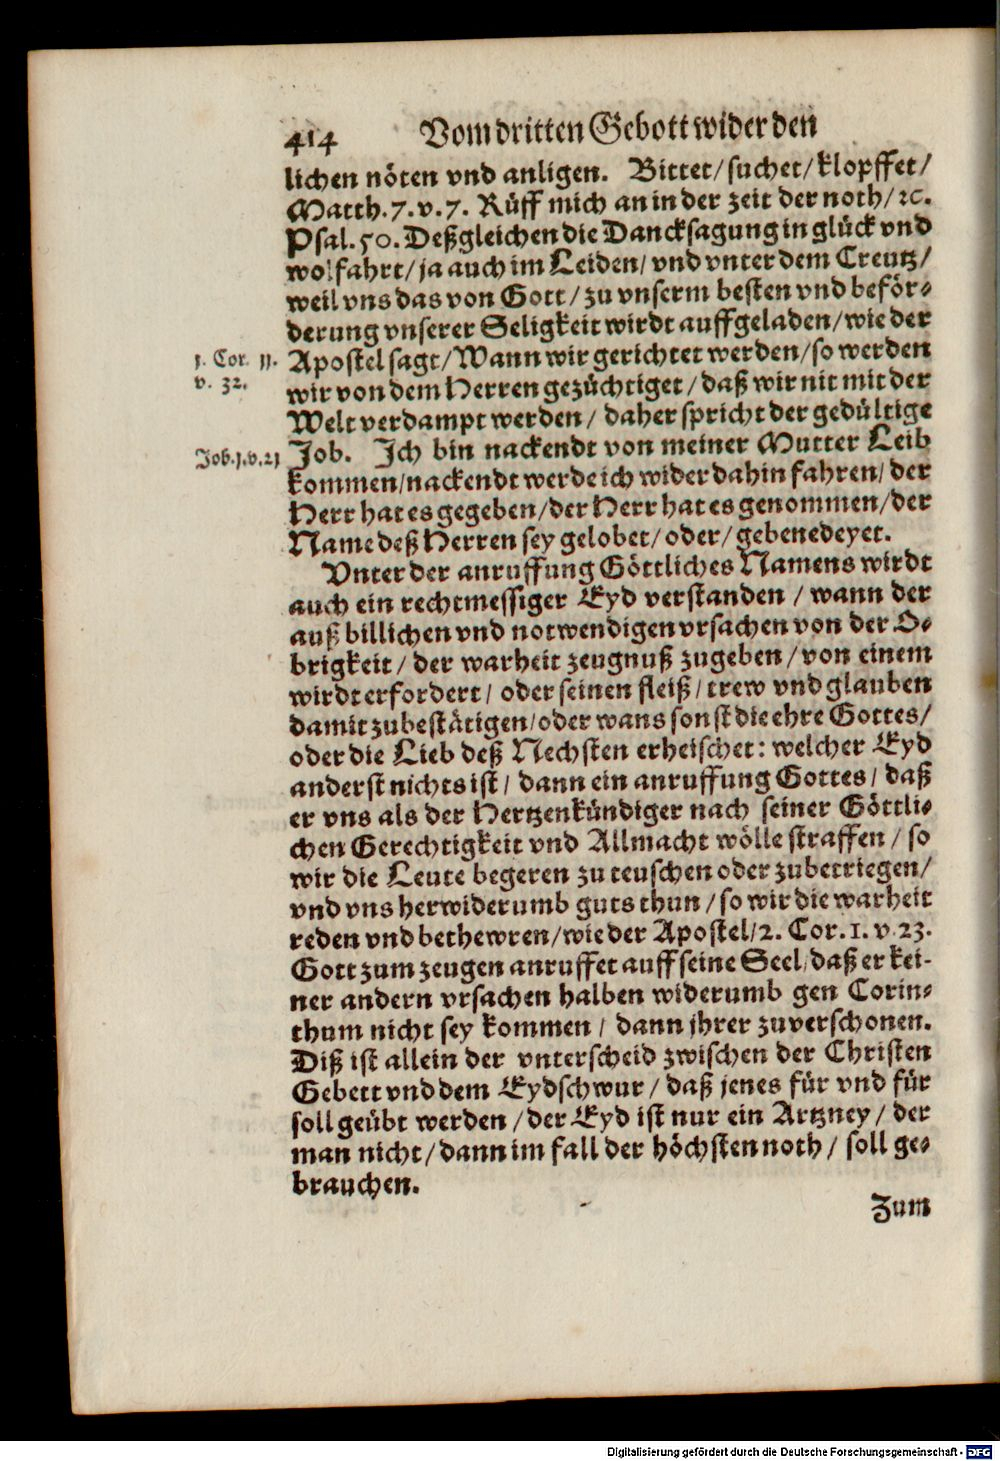 414 Vom dritten Gebott wider den
lichen nöten vnd anligen. Bittet/ suchet/ klopffet/
Matth. 7. v. 7. Rüff mich an in der zeit der noth/ ꝛc.
Psal. 50. Deßgleichen die Dancksagung in glück vnd
wolfahrt/ ja auch im Leiden/ vnd vnter dem Creutz/
weil vns das von Gott/ zu vnserm besten vnd beför-
derung vnserer Seligkeit wirdt auffgeladen/ wie der
1. Cor. 11. Apostel sagt/ Wann wir gerichtet werden/ so werden
v. 32. wir von dem Herren gezüchtiget/ daß wir nit mit der
Welt verdampt werden/ daher spricht der gedültige
Job. 1. v. 21 Job. Ich bin nackendt von meiner Mutter Leib
kommen/ nackendt werde ich wider dahin fahren/ der
Herr hat es gegeben/ der Herr hat es genommen/ der
Name deß Herren sey gelobet/ oder/ gebenedeyet.
Vnter der anruffung Göttliches Namens wirdt
auch ein rechtmessiger Eyd verstanden/ wann der
auß billichen vnd notwendigen vrsachen von der O-
brigkeit/ der warheit zeugnuß zugeben/ von einem
wirdt erfordert/ oder seinen fleiß/ trew vnd glauben
damit zubestätigen/ oder wans sonst die ehre Gottes/
oder die Lieb deß Nechsten erheischet: welcher Eyd
anderst nichts ist/ dann ein anruffung Gottes/ daß
er vns als der Hertzenkündiger nach seiner Göttli-
chen Gerechtigkeit vnd Allmacht wölle straffen/ so
wir die Leute begeren zu teuschen oder zubetriegen/
vnd vns herwiderumb guts thun/ so wir die warheit
reden vnd bethewren/ wie der Apostel/ 2. Cor. 1. v. 23.
Gott zum zeugen anruffet auff seine Seel/ daß er kei-
ner andern vrsachen halben widerumb gen Corin-
thum nicht sey kommen/ dann jhrer zuverschonen.
Diß ist allein der vnterscheid zwischen der Christen
Gebett vnd dem Eydschwur/ daß jenes für vnd für
soll geübt werden/ der Eyd ist nur ein Artzney/ der
man nicht/ dann im fall der höchsten noth/ soll ge-
brauchen.
Zum
Digitalisierung gefördert durch die Deutsche Forschungsgemeinschaft - DFG